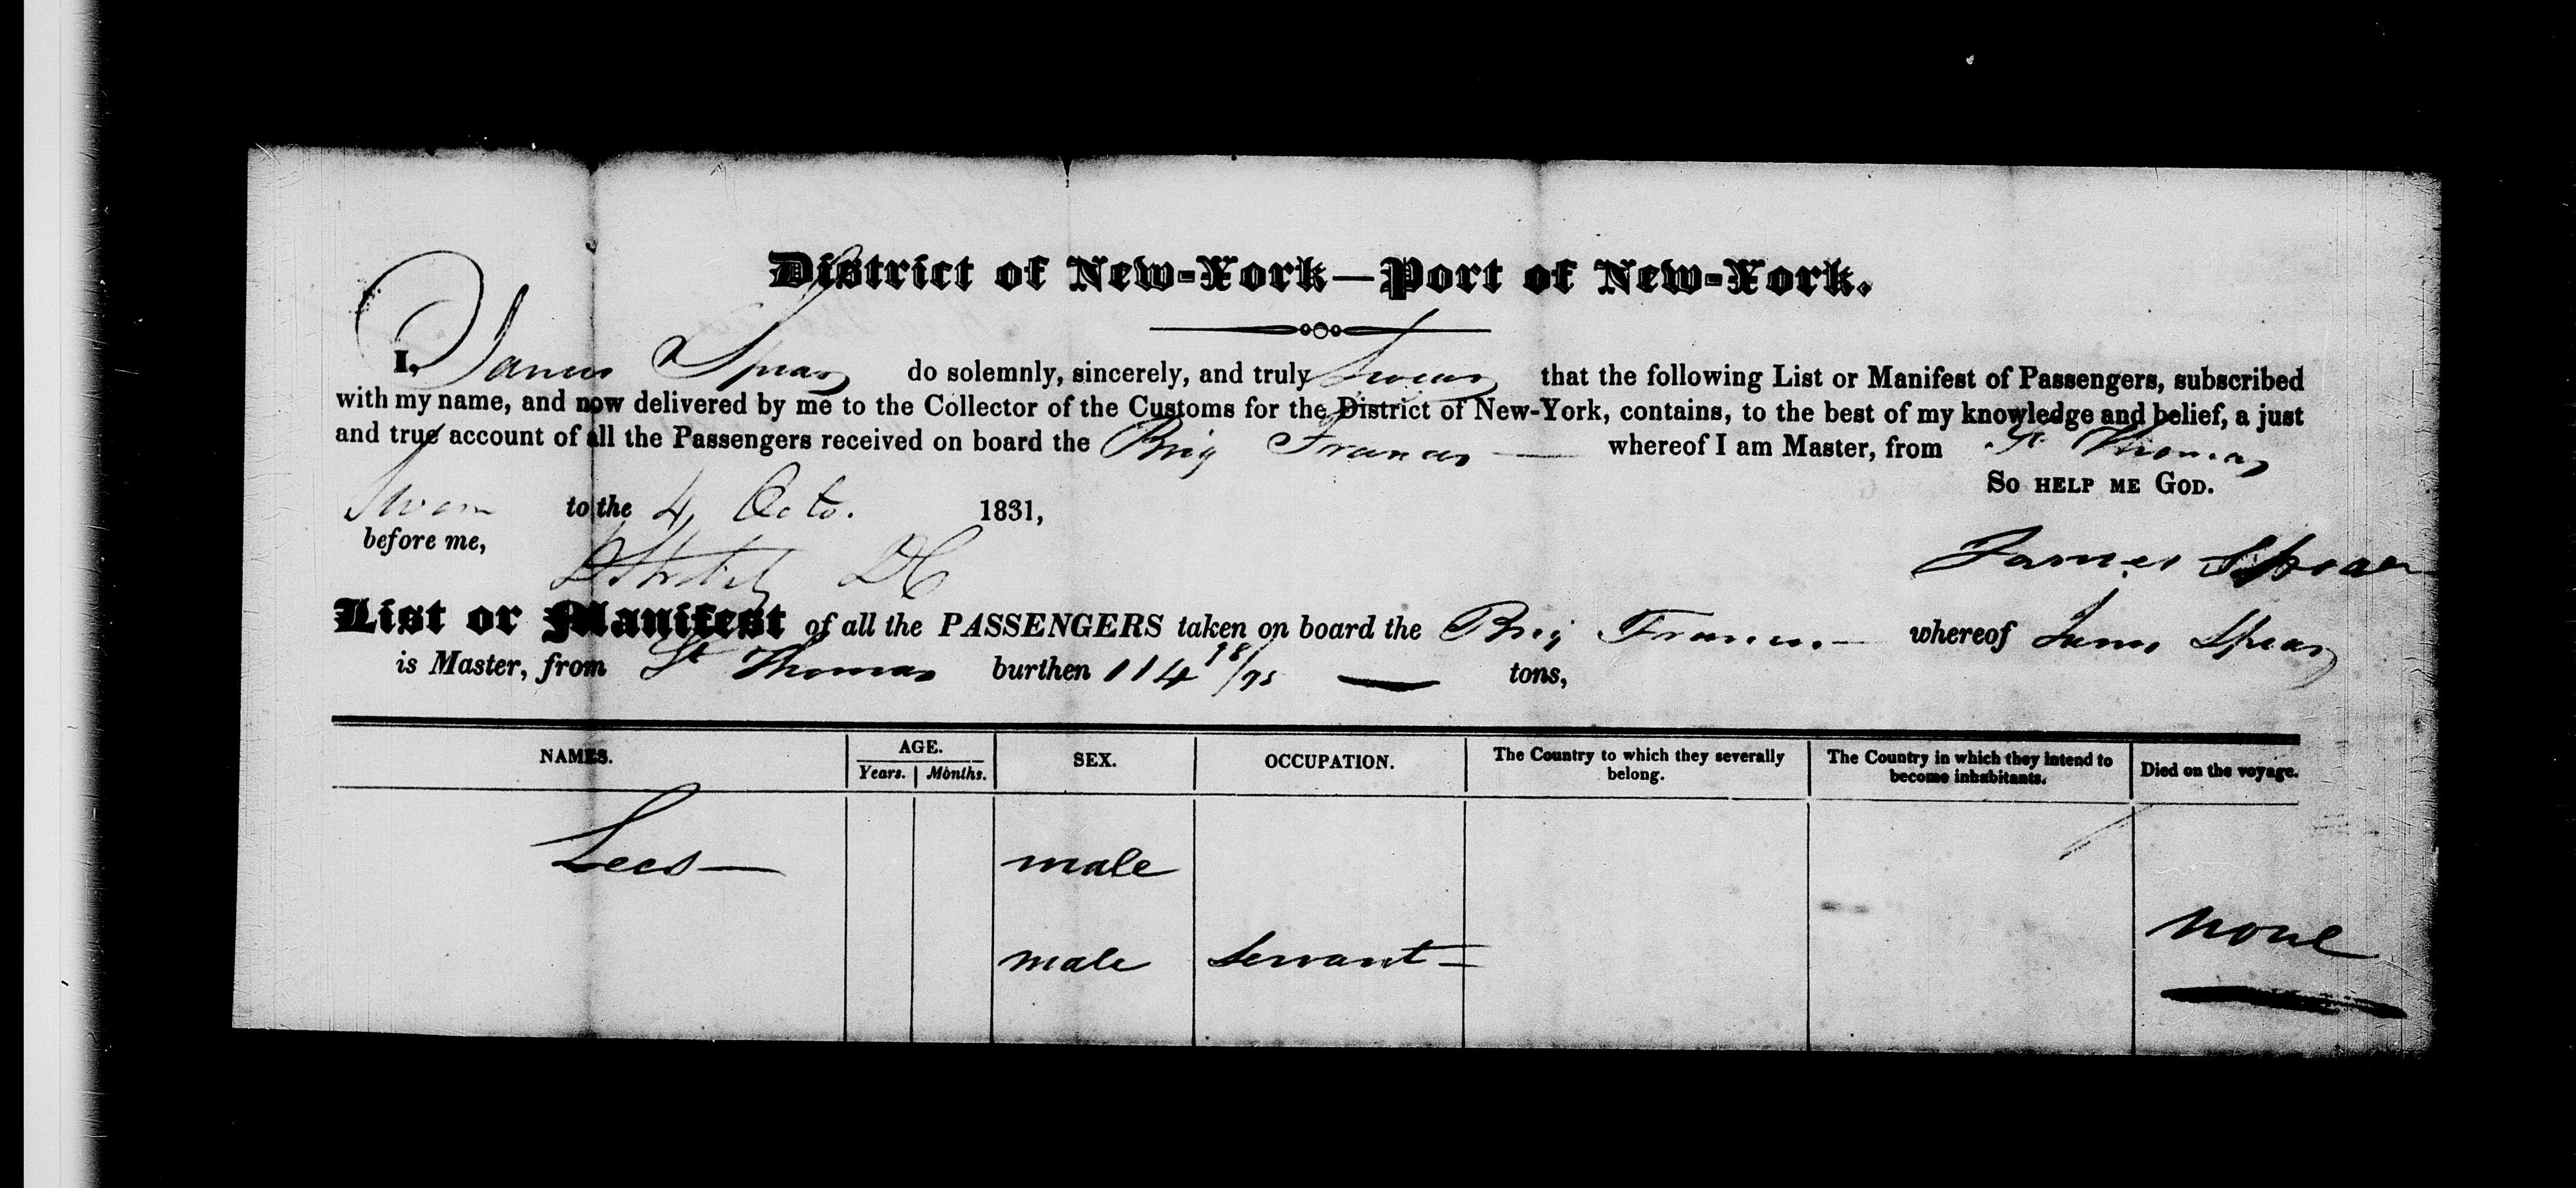 District of New-York—Port of New-York.
I, James Spear do solemnly, sincerely, and truly Swear that the following List or Manifest of Passengers, subscribed
with my name, and now delivered by me to the Collector of the Customs for the District of New-York, contains, to the best of my knowledge and belief, a just
and true account of all the Passengers received on board the Brig Frances — whereof I am Master, from St Thomas
So help me God.
Sworn to the 4 Octo. 1831,
before me,
DC
James Spear
List or Manifest of all the PASSENGERS taken on board the Brig Frances — whereof James Spear
is Master, from St Thomas burthen 114 98/95 — tons,
NAMES. AGE. SEX. OCCUPATION. The Country to which they severally belong. The Country in which they intend to become inhabitants. Died on the voyage.
Years. Months.
Lees — male
none
male servant =